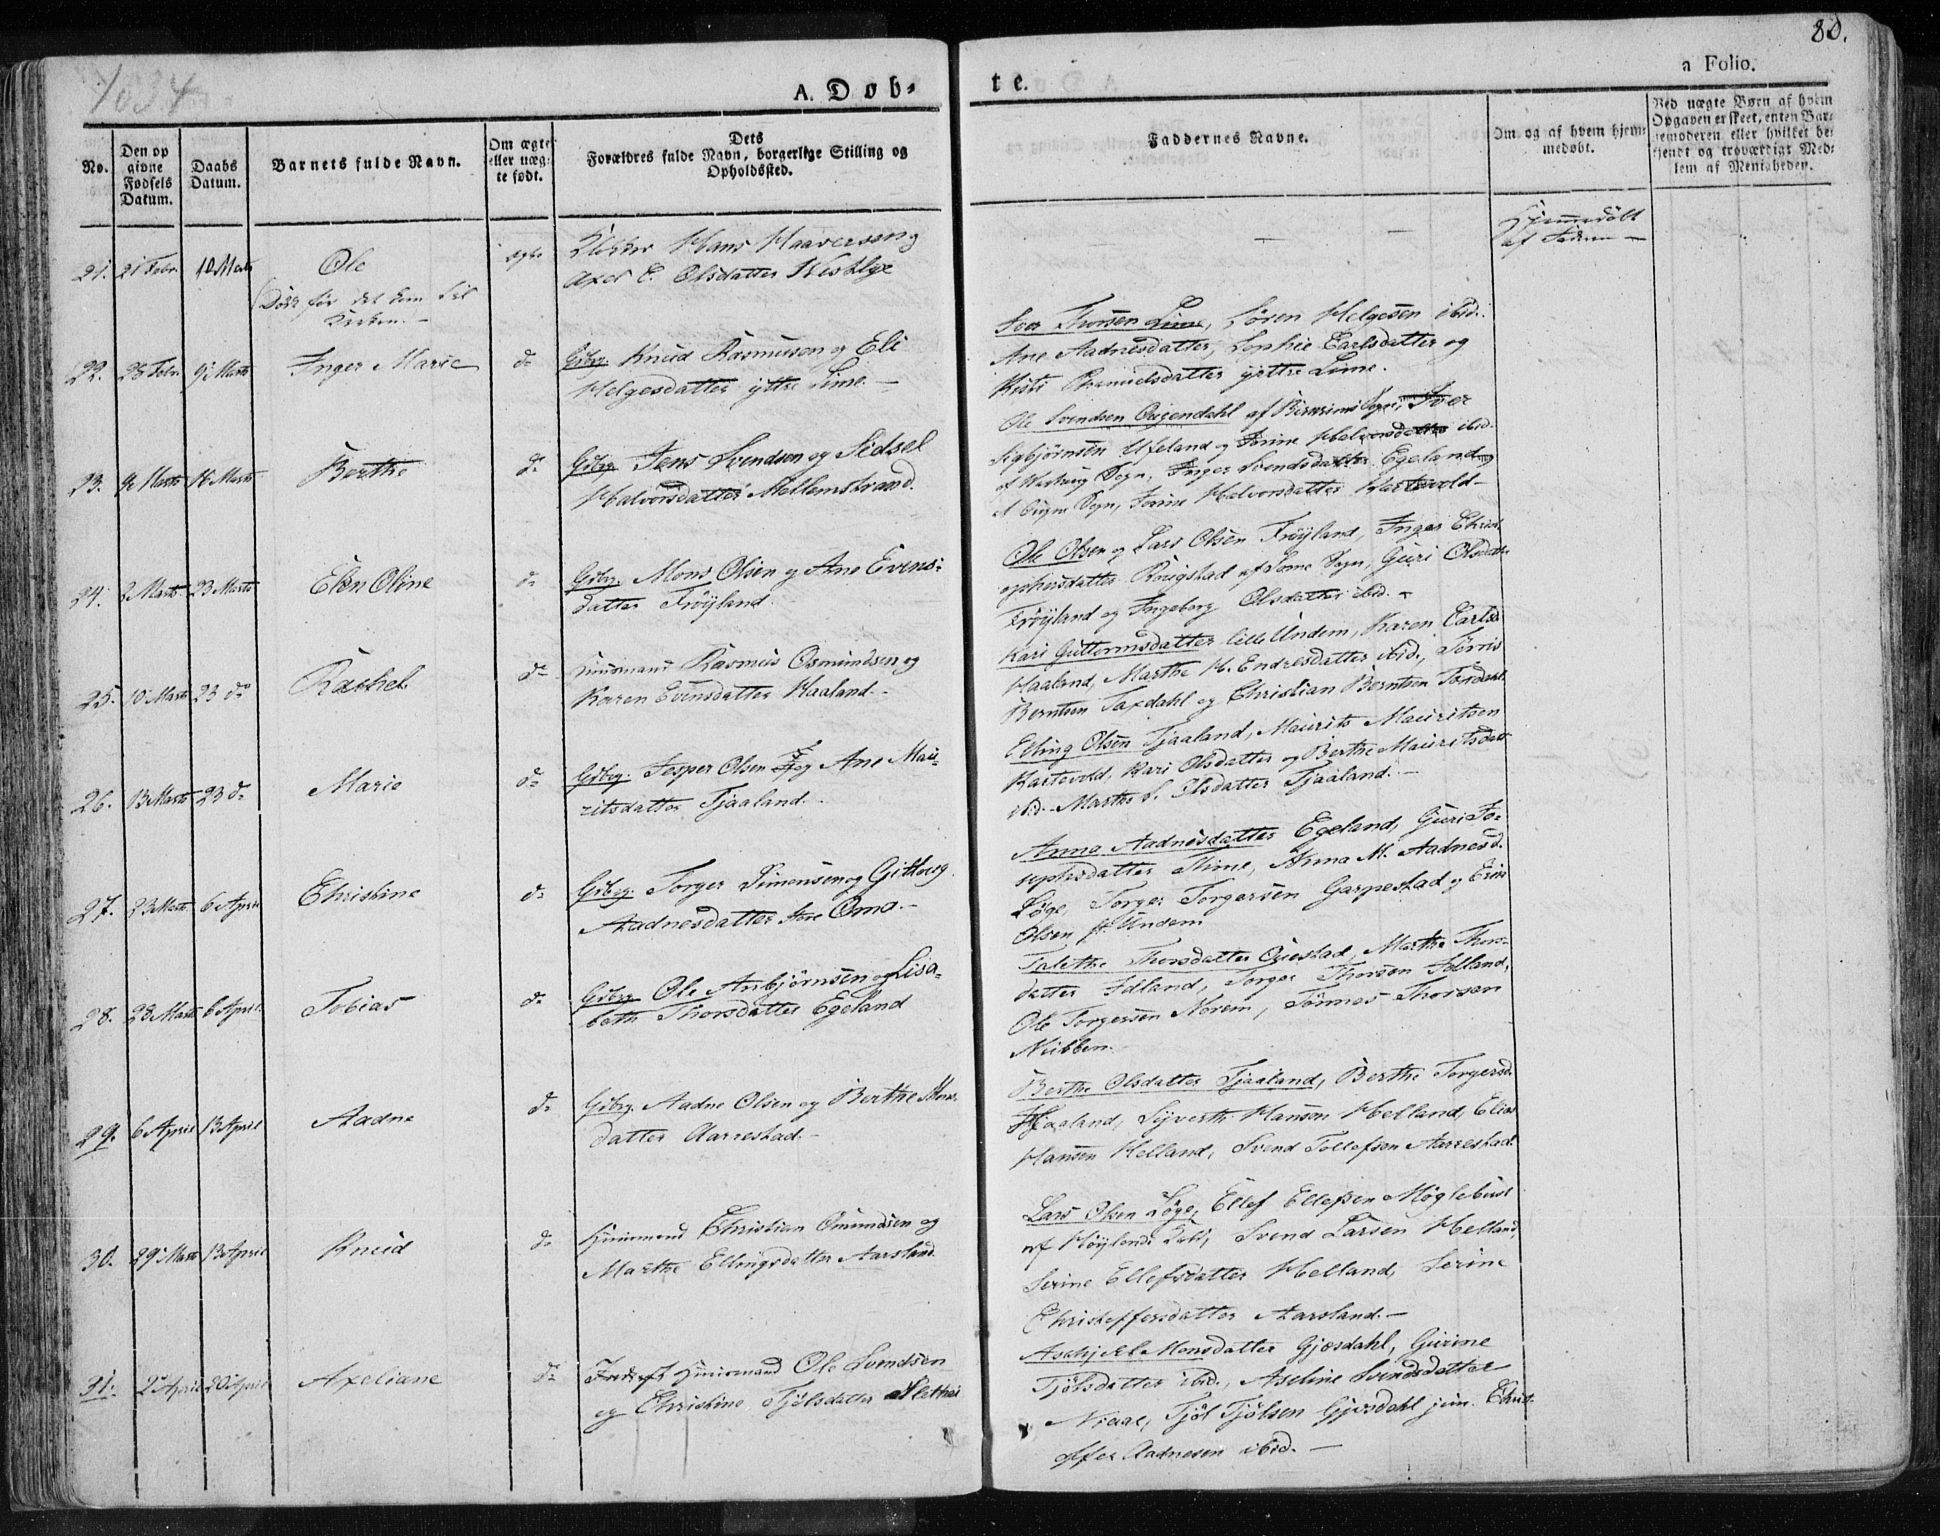 80.
1834
A. Døb-
te.
a Folio.
No.
Den op
givne
Fødsels
Datum.
Daabs
Datum.
Barnets fulde Navn.
Om ægte
eller uæg-
te født.
Dets
Forældres fulde Navn, borgerlige Stilling og
Opholdssted.
Faddernes Navne.
Om og af hvem hjem-
medøbt.
Ved uægte Børn af hvem
Opgaven er skeet, enten Bar-
nemoderen eller hvilket be-
kjendt og troværdigt Med-
lem af Menigheden.
21. 21 Febr. 10 Marts Ole ægte Klokker Hans Haaversen og
Axel C. Olsdatter Westlye
(Døde før det kom til
Kirken.-
Hjemmedøbt
af Faderen -
22. 28 Febr. 9 Marts Inger Marie do Gdbrg. Knud Rasmusen og Eli
Helgesdatter yttre Lime. -
Iver Thorsen Lime, Søren Helgesen ibid.
Ane Aadnesdatter, Sophie Carlsdatter og
Kisti Samuelsdatter yttre Lime.
23. Marts 16 Marts Berthe do Gdbrg. Jens Svendsen og Sidsel
Halvorsdatter Mellemstrand.
Ole Svendsen Ougendahl af Birkrims Sogn, Iver
Sigbjørnsen Ueland og Serine Halvorsdatter ibid.
Sogn, Inger Svendsdatter Egeland
Sogn, Serine Halvorsdatter Kartevold -
24. 3 Marts 23 Marts Elen Oline do Gdbrg. Mons Olsen og Ane Evens-
datter Frøyland.
Ole Olsen og Lars Olsen Frøyland, Inger Christ-
ophersdatter Rougstad af Sogn, Guri Olsdatter
Frøyland og Ingeborg Olsdatter ibid. -
25. 10 Marts 23 do Rachel do Huusmand Rasmus Osmundsen og
Karen Evensdatter Haaland. -
Kari Guttormsdatter lille Undem, Karen Carlsd.
Haaland, Marthe M. Endresdatter ibid., Tørris
Berntsen Taxdahl og Christian Berntsen Taxdahl.
26. 13 Marts 23 do Marie do Gdbrg. Jesper Olsen og Ane Mau-
ritsdatter Tjaaland.
Elling Olsen Tjaaland, Maurits Mauritsen
Kartevold, Kari Olsdatter og Berthe Mauritsdatt.
ibid. Marthe S. Olsdatter Tjaaland. -
27. 23 Marts 6 April Christine do Gdbrg. Torger Simensen og Gitborg
Aadnesdatter store Omo. -
Anna Aadnesdatter Egeland, Guri Jo-
sephsdatter Time, Anna M. Aadnesd.
Løge, Torger Torgersen Garpestad og Even
Olsen st. Undem
28. 23 Marts 6 April Tobias do Gdbrg. Ole Anbjørnsen og Lisa-
beth Thorsdatter Egeland
Talethe Thorsdatter Questad, Marthe Thors-
datter Idland, Torger Thorsen Idland,
Ole Torgersen Norem, Tønnes Thorsen
Nubben.
29. 6 April 13 April Aadne do Gdbrg. Aadne Olsen og Berthe Mons-
datter Aarrestad. -
Berthe Olsdatter Tjaaland, Berthe Torgersd.
Haaland, Syverth Hansen Helland, Elias
Hansen Helland, Svend Tollefsen Aarrestad.
30. 29 Marts 13 April Knud do Huusmand Christian Omundsen og
Marthe Ellingsdatter Aarsland.
Lars Olsen Løge, Ellef Ellefsen Møglebust
af Høylands Svend Larsen Helland,
Serine Ellefsdatter Helland, Serine
Christoffersdatter Aarsland. -
31. 2 April 20 April Axeliane do Huusmand Ole Svendsen
og Christine Tjølsdatter Slethei
Aschjel Monsdatter Gjesdahl, Gurine
Tjølsdatter ibid., Aseline Svendsdatter
Niaae, Tjøl Tjølsen Gjesdahl jun. Christ-
offer Aadnesen ibid. -